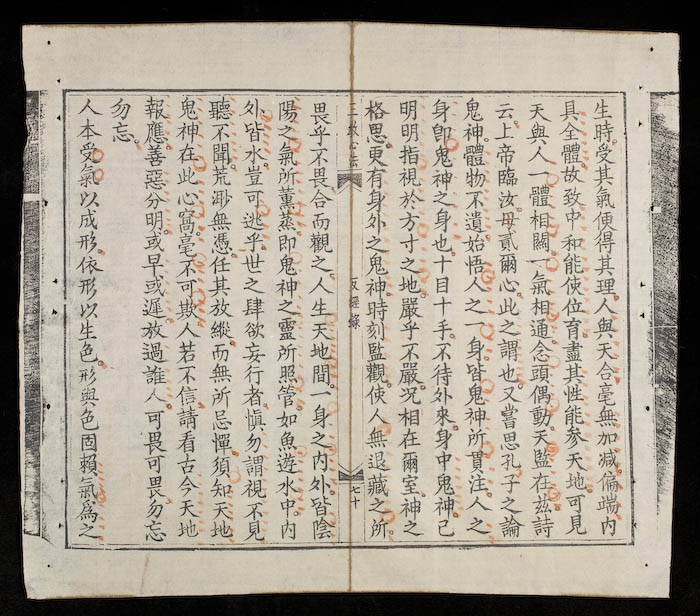 生時受其氣便得其理人與天合毫無加減偏端內
具全體故致中和能使位育盡其性能參天地可見
天與人一體相關一氣相通念頭偶動天監在茲詩
云上帝臨汝毋貳爾心此之謂也又嘗思孔子之論
鬼神體物不遺始悟人之一身皆鬼神所貫注人之
身卽鬼神之身也十目十手不待外來身中鬼神已
明明指視於方寸之地嚴乎不嚴况相在爾室神之
格思更有身外之鬼神時刻監觀使人無退藏之所
七十
畏乎不畏合而觀之人生天地間一身之內外皆陰
陽之氣所薰蒸即鬼神之靈所照管如魚遊水中內
外皆水豈可逃乎世之肆欲妄行者愼勿謂視不見
聽不聞荒渺無憑任其放縱而無所忌憚須知天地
鬼神在此心窩毫不可欺人若不信請看古今天地
報應善惡分明或早或遲放過誰人可畏可畏勿忘
勿忘
人本受氣以成形依形以生色形與色固賴氣爲之